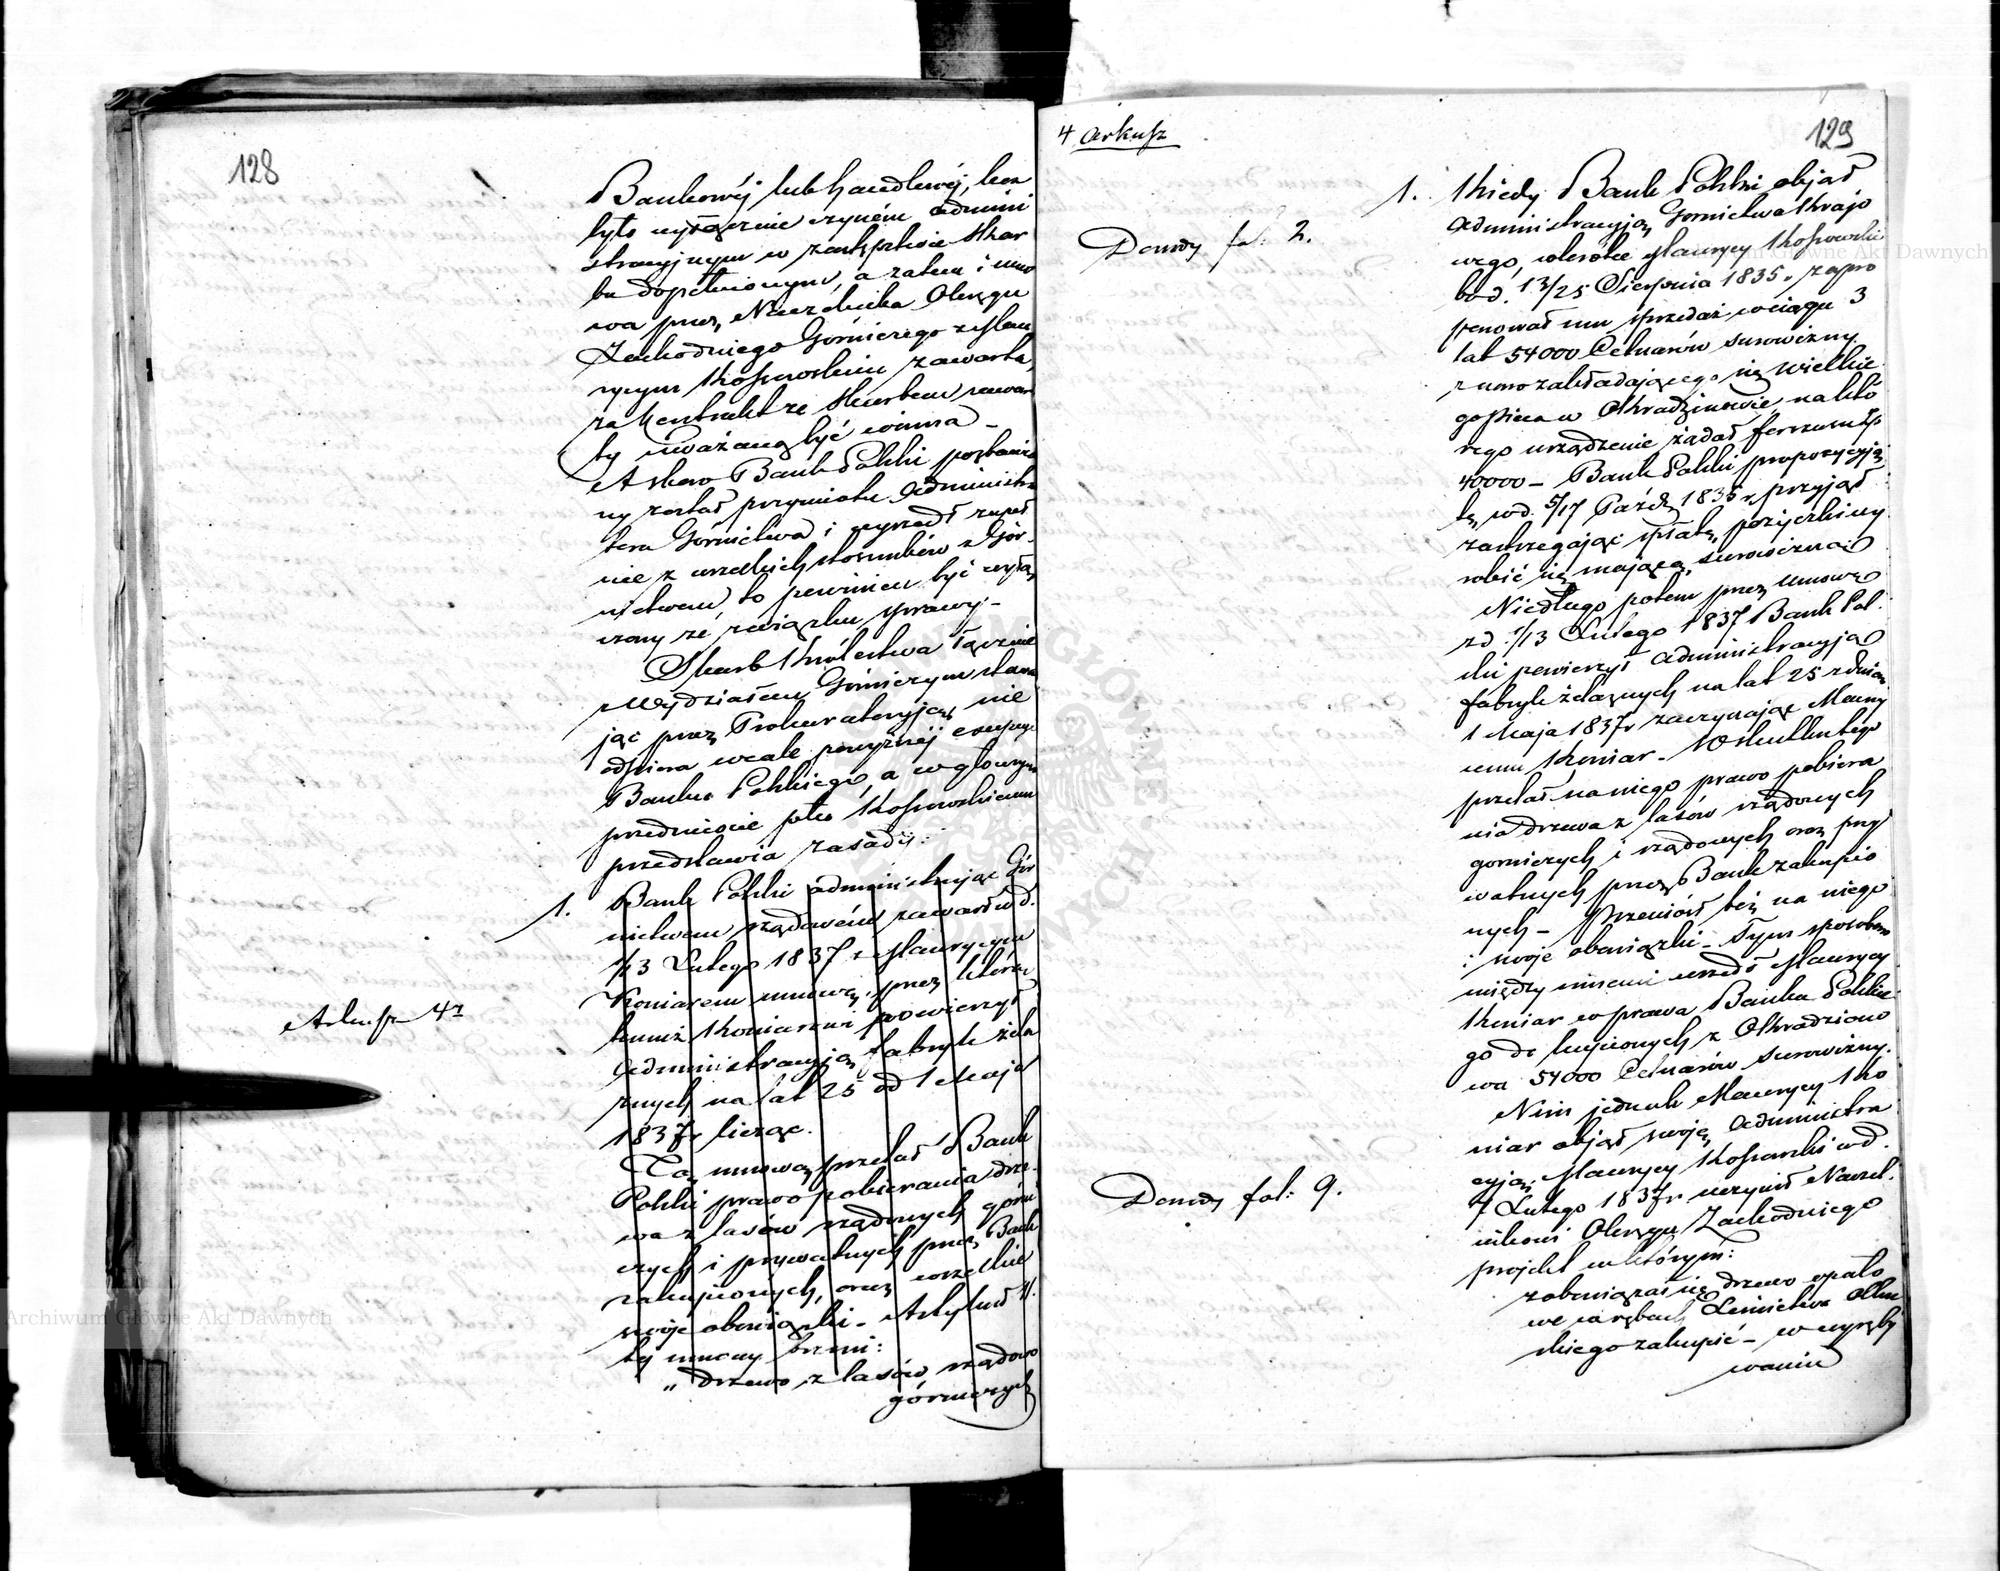 128
Bankowéj lub handlowéj, lecz
było wyłącznie czyném admini
stracyjnym w zastępstwie Skar
bu dopełnionym, a zatem i umo
wa przez Naczelnika Okręgu
Zachodniego Górniczego z Maury
rycym Kossowskim zawarta,
za kontrakt ze Skarbem zawar
ty uważaną być winna –
A skoro Bank Polski pozbawio
ny został przymiotu administra
tora Górnictwa i wyszedł zupeł
nie z wszelkich stosunków z Gór-
nictwem, to powinien być wyłą
czony ze związku sprawy. –
Skarb Królestwa łącznie
z Wydziałem Górniczym stawa
jąc przez Prokuratoryją, nie
odpiera wcale powyższéj excepcyi
Banku Polskiego, a w głównym
przedmiocie pko Kossowskiemu
przedstawia zasady:
1. Bank Polski administrując Gór
nictwem rządowém zawarł w d.
1/13 Lutego 1837 z Maurycym
Koniarem umowę, przez którą
temuż Koniarowi powierzył
administracyją fabryk żela
znych na lat 25 od 1 Maja
1837 r licząc.
Arkusz 4ty
Tą umową przelał Bank
Polski prawo pobierania drze-
wa z lasów rządowych górni
czych i prywatnych przez Bank
zakupionych, oraz wszelkie
swoje obowiązki – Artykuł 11.
téj umowy brzmi:
„drzewo z lasów rządowo
górniczych
4 arkusz
129
1. Kiedy Bank Polski objął
administracyją Gornictwa Krajo
wego, wówczas Maurycy Kossowski
Dowody fol: 2.
w d. 13/25 Sierpnia 1835 r. zapro
ponował mu sprzedaż w ciągu 3
lat 54000 Cetnarów surowizny
z nowo zakładającego się wielkie
go pieca w Okradzionowie, na któ
rego urządzenie żądał forszusu zp
40000 – Bank Polski propozycyją
tę, w d. 5/17 Paźdz 1835 r. przyjął
zastrzegając spłatę, pożyczki wy
robić się mającą surowizną.
Niedługo potem przez umowę
z d. 1/13 Lutego 1837 Bank Pol
ski powierzył administracyją
fabryk żelaznych na lat 25 z dniem
1 Maja 1837 r zaczynając Maury
cemu Koniar. – W skutku tego
przelał na niego prawo pobiera
nia drzewa z lasów rządowych
gorniczych i rządowych oraz pry
watnych przez Bank zakupio
nych – Przeniósł też na niego
i swoje obowiązki – Tym sposobem
między innemi wszedł Maurycy
Koniar w prawa Banku Polskie
go do kupionych z Okradziono
wa 54000 Cetnarów surowizny.
Nim jednak Maurycy Ko
niar objął swoję administra
cyją; Maurycy Kossowski w d.
Dowody fol: 9.
7 Lutego 1837 r uczynił Naczel
nikowi Okręgu Zachodniego
projekt w którym:
zobowiązał się drzewo opało
we w wrębach Leśnictwa Olku
skiego zakupić – w wyręby
waniu